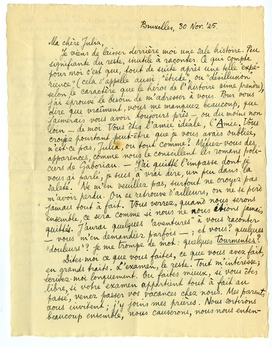 Bruxelles, 30 Nov. '25.
Ma chère Julia,
Je viens de laisser derrière moi une sale histoire. Peu
signifiante du reste, inutile à raconter. Ce qui compte
pour moi c'est que, tout de suite après une telle expé-
rience, (cela s'appelle aussi "étude", ou "désillusion"
selon le caractère que le héros de l'histoire aime prendre),
j'ai éprouvé le besoin de m'adresser à vous. Pour vous
dire que vraiment vous me manquez beaucoup, que
vous avez beau toujours près – ou du moins non
loin – de moi. Vous êtes l'amie idéale, l'Amie. Vous
croyez pourtant peut-être que je vous avais oubliée,
n'est-ce pas, Julia, ou tout comme? Méfiez-vous des
apparences, comme nous le conseillent les romans poli-
ciers de Gaboriau. – J'ai quitté l'impasse dont je
vous ai parlé, je suis à vrai dire, un peu dans la
saleté. Ne m'en veuillez pas, surtout ne croyez pas
m'avoir perdu. On se retrouve d'ailleurs, on ne se perd
jamais tout à fait. Vous verrez, quand nous serons
ensemble, ce sera comme si nous ne nous étions jamais
quittés. J'aurai quelques "aventures" à vous raconter
– vous m'en demandiez parfois –; et vous? quelques
"douleurs"? je me trompe de mot: quelques tourmentes?
Dites-moi ce que vous faites, ce que vous avez fait,
en grands traits. L'examen, le reste. Tout m'intéresse,
écrivez-moi longuement. Ou faites mieux, si vous êtes
libre, si votre examen appartient tout à fait au
passé, venez passer vos vacances chez nous. Mes parents
vous invitent; j'y joins mes prières. Nous sortirons
beaucoup ensemble, nous causerons, nous nous enten-